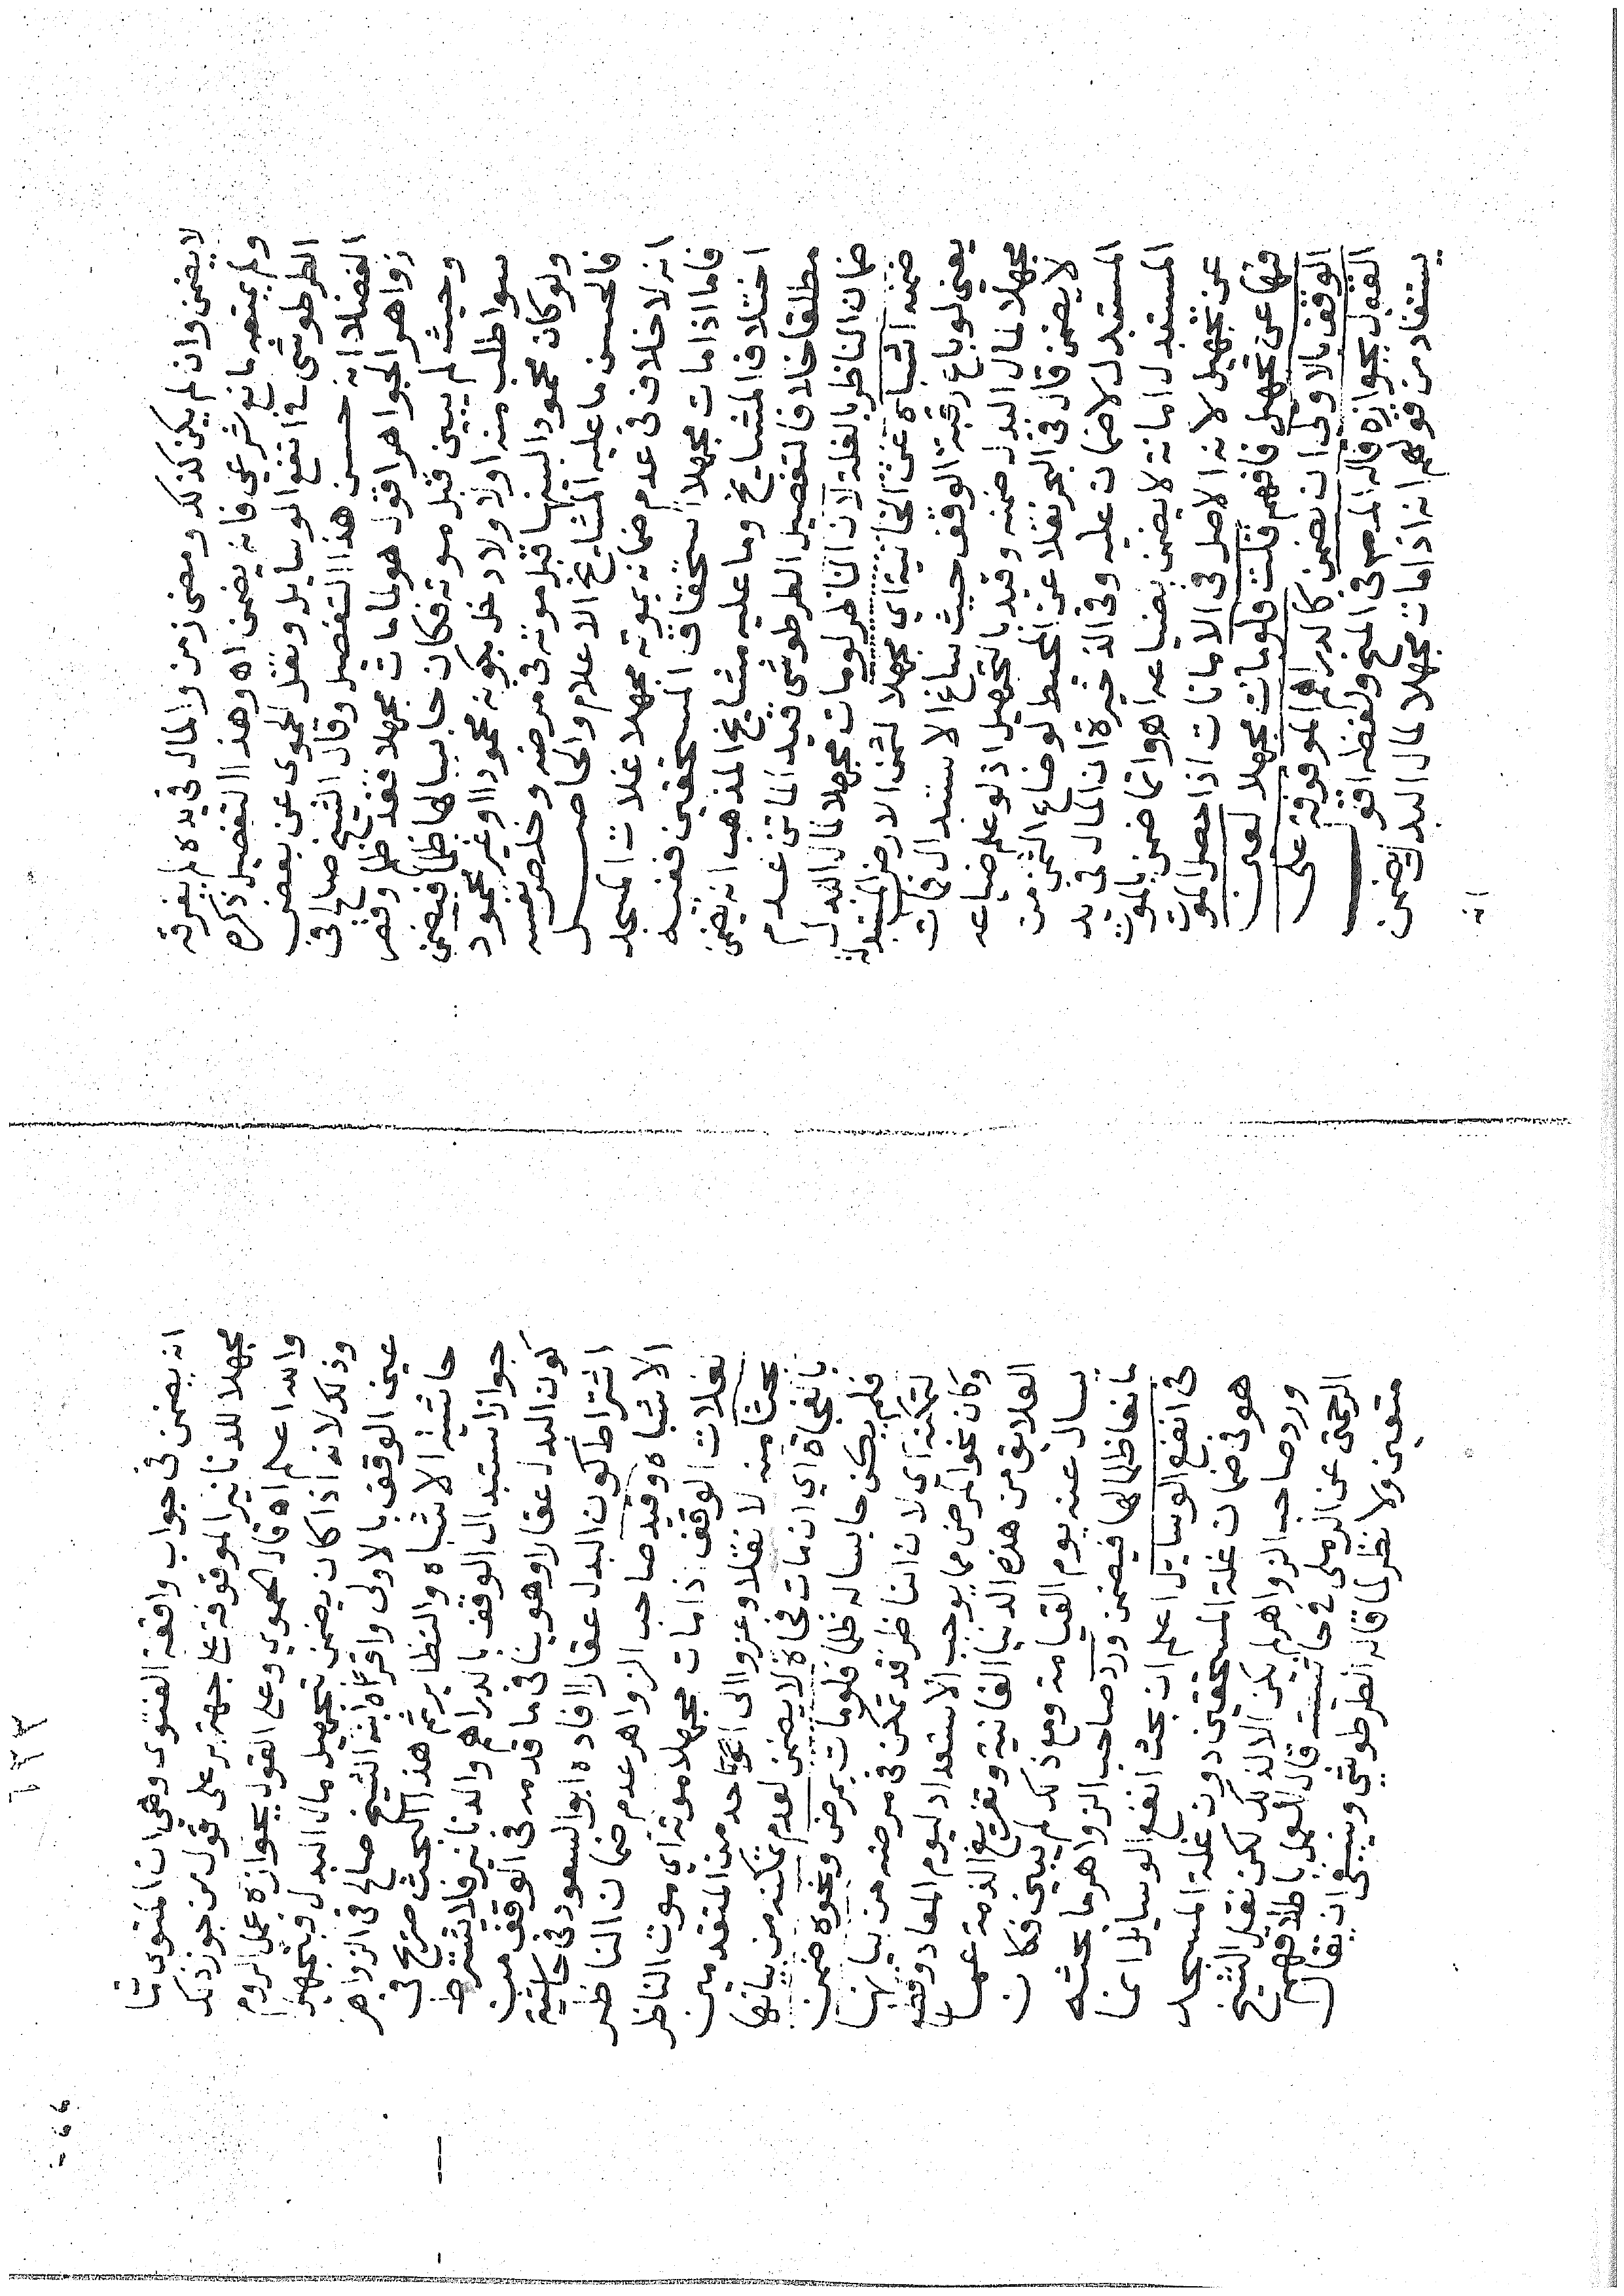 لا يضمن وان لم يكن كذلك ومضى زمن والمال في يده لم يفرقه
ولم يمنعه مانع شرعي فانه يضمن اه وهذا التفصيل ذكره
الطرطوشي في انفع الوسايل ونقل الحموى عن بعض
الفضلا انه حسن هذا التفصيل وقال الشيخ صالح في
زواهر الجواهر اقول هو لما مات مجهلا فقد ظلم وقصر
وحيث لم يبين قبل موته فكان حابسا لها ظلما فيضمن
سوا طلب منه اولا ولا دخل بكونه محمودا او غير محمود
ولو كان محمودا لبينها قبل موته في مرضه وخلص نفسه
فالحسن ما عليه المشايخ الاعلام والحاصل
انه لا خلاف في عدم ضمانه بموته مجهلا غلات المسجد
فاما اذا مات مجهلا استحقاق المستحقين ففيه
اختلاف المشايخ وما عليه مشايخ المذهب انه يضمن
مطلقا خلافا لتفصيل الطرطوشي قيد الماتن عدم
ضمان الناظر بالغلة لان الناظر لو مات مجهلا لمال البدل
ضمنه اشباه عن الخانية اي مجهلا لثمن الارض المستبدلة
يعني لو باع رقبة الوقف حيث ساغ الاستبدال فمات
مجهلا لمال البدل ضمنه وقيد بالتجهيل اذ لو علم ضياعه
لا يضمن قال في البحر نقلا عن المحيط لو ضاع الثمن من
المستبدل لا ضمان عليه وفي الذخيرة ان المال في يد
المستبدل امانة لا يضمن بضياعه اه وانما ضمن بالموت
عن تجهيل لانه الاصل في الامانات اذا حصل الموت
فيها عن تجهيل فافهم قلت فلو مات مجهلا لعين
الوقف بالاولى ان يضمن كالدراهم الموقوفة على
القول بجوازه قاله المص في المنح ولفظه اقول
يستفاد من قولهم انه اذا مات مجهلا لمال البدل يضمن
انه
٢٣٣
انه يضمن في جواب واقعة الفتوى وهي ان المتولى مات
مجهلا للدنانير الموقوفة على جهة بر على قول من جوز ذلك
والله اعلم اه قال الحموي وعلى القول بجوازه عمل الروم
وذلك لانه اذا كان يضمن بتجهيل مال البدل فبتجهيل
عين الوقف بالاولى واقره ابنه الشيخ صالح في الزواهر
حاشية الاشباه والنظاير ثم هذا البحث صريح في
جواز استبدال الوقف بالدراهم والدنانير فلا يشترط
كون البدل عقارا وهو ينافي ما قدمه في الوقف من
اشتراط كون البدل عقارا افاده ابو السعود في حاشية
الاشباه وقيد صاحب الزواهر عدم ضمان الناظر
بغلات الوقف اذا مات مجهلا موته اي موت الناظر
بحثا منه لا نقلا وعزوا الى احد من المتقدمين
بالفجأة اي ان مات فجأة لا يضمن لعدم تمكنه من بيانها
فلم يكن حابسا له ظلما فلو مات بمرض ونحوه ضمن
لتمكنه اي لان الناظر قد تمكن في مرضه من بيانها
وكان نحو المرض مما يوجب الاستعداد ليوم المعاد وقطع
العلايق من هذه الدنيا الفانية وتفريغ الذمة عما
يسال عنه يوم القيامة ومع ذلك لم يبين فكان
مانعا ظالما لها فيضمن ورد صاحب الزواهر ما بحثه
في انفع الوسايل اعلم ان بحث انفع الوسايل انما
هو في ضمان غلة المستحقين دون غلة المسجد
ورد صاحب الزواهر لم يكن الا لذلك لكن نقل الشيخ
الرحمتى عن الرملى في حاشيته قال العمل باطلاقهم
متعين ولا نظر لما قاله الطرطوشي وينبغي ان يقال